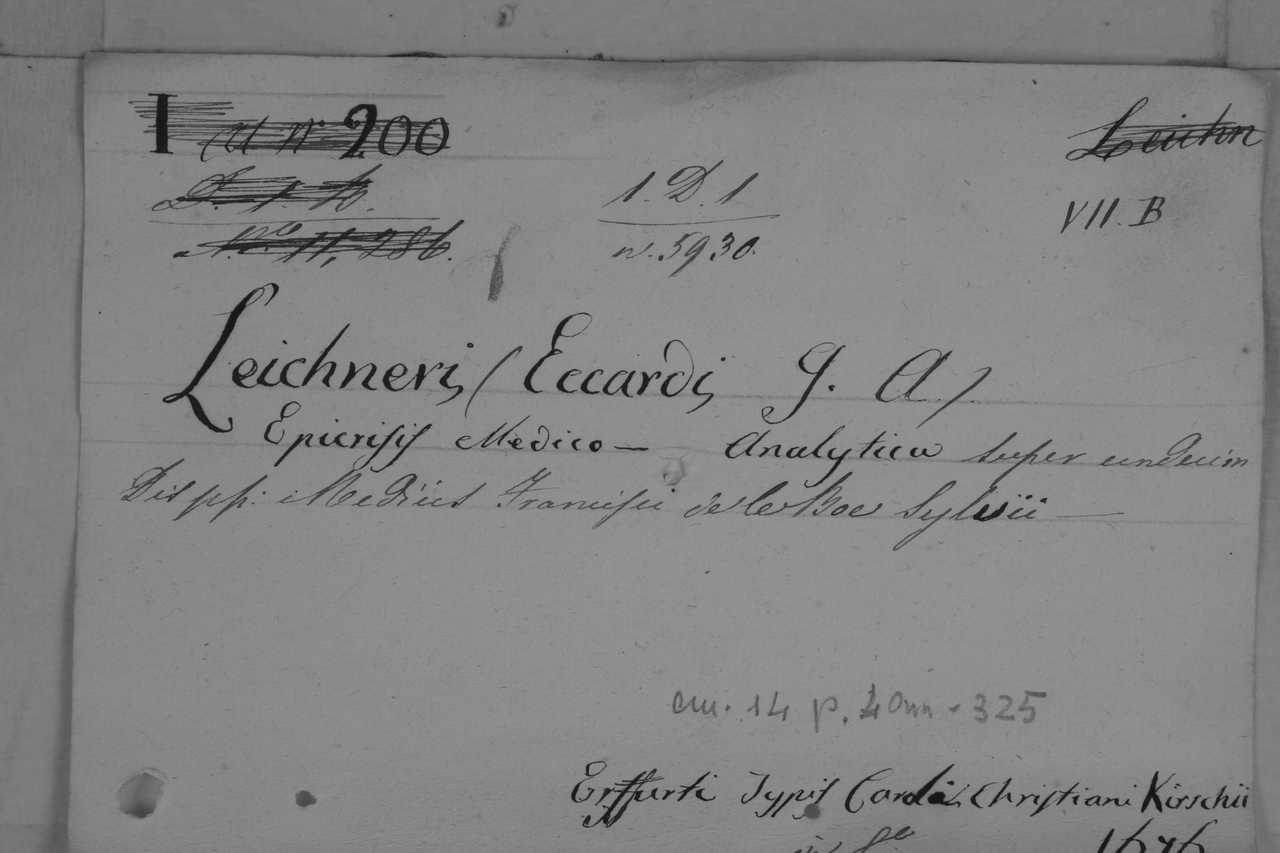 I 200
Leichn
1. D. 1
VII. B
N.º 11,286.
n. 5930.
Leichneri (Eccardi G. A.)
Epicrisis Medico - Analytica super undecim
Dispp: Medicis Francisci de le Boe Sylvii
cm. 14 p. - 325
Erffurti Typis Caroli Christiani Kirschii
in 8º 1676